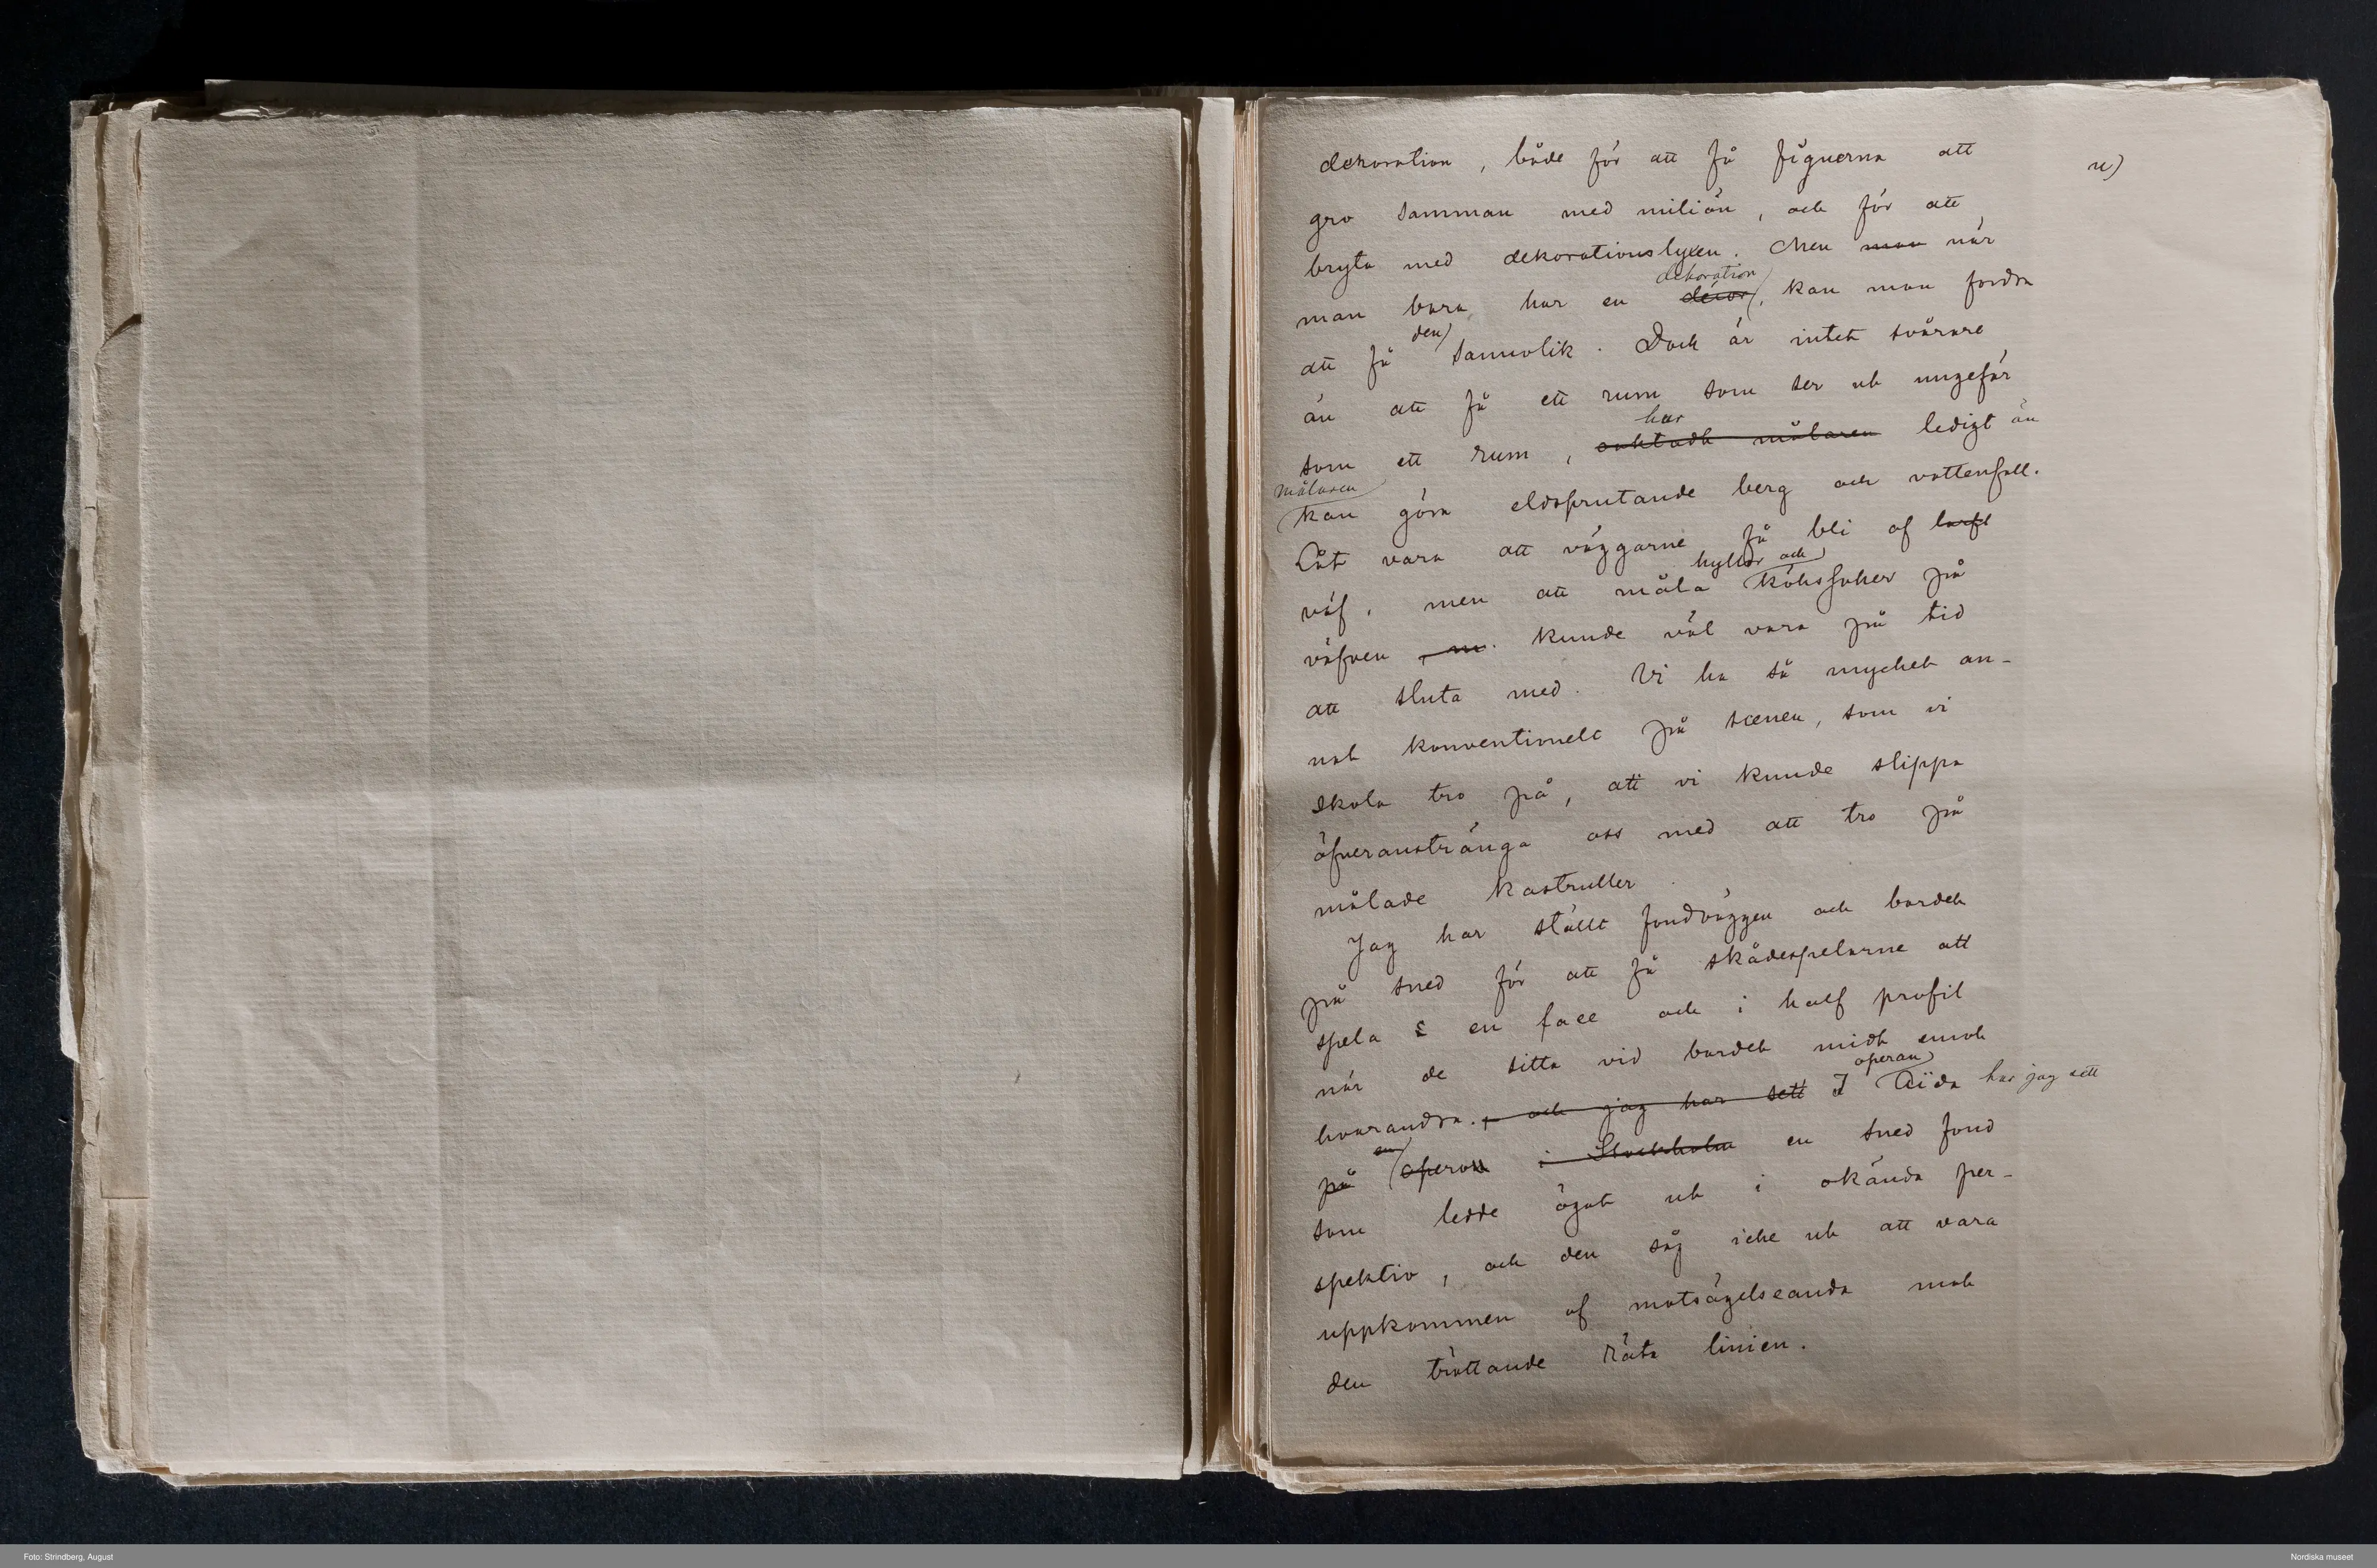 dekoration, både för att få figurerna att
u)
gro samman med miliön, och för att
bryta med dekorationslyxen. Men man när
dekoration
man bara har en décor, kan man fordra
den
att få sannolik. Dock är intet svårare
än att få ett rum som ser ut ungefär
har
som ett rum, målaren ledigt än
målaren
kan göra eldsprutande berg och vattenfall.
Låt vara att väggarne få bli af
hyllor och
väf, men att måla köhssaker på
väfven, m. kunde väl vara på tid
att sluta med. Vi ha så mycket an-
nat konventionelt på scenen, som vi
skola tro på, att vi kunde slippa
öfveranstränga oss med att tro på
målade kastruller.
Jag har stält fondväggen och bordet
på sned för att få skådespelarne att
spela en face och i half profil
när de sitta vid bordet midt emot
operan
hvarandra. , och jag har sett I Aïda har jag sett
en
på operan i Stockholm en sned fond
som ledde ögat ut i okända per-
spektiv, och den såg icke ut att vara
uppkommen af motsägelseanda mot
den tröttande räta linien.
Foto: Strindberg, August
Nordiska museet